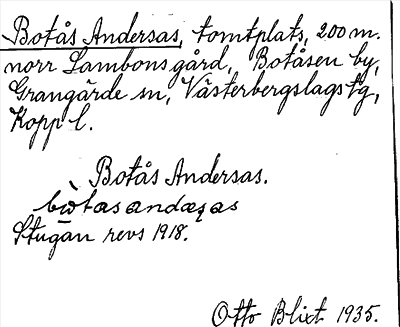 Botås Andersas, tomtplats, 200 m.
norr Lambonsgård, Botåsen by,
Grangärde sn, Västerbergslags tg,
Kopp l.
Botås Andersas.
Stugan revs 1918.
Otto Blixt 1935.